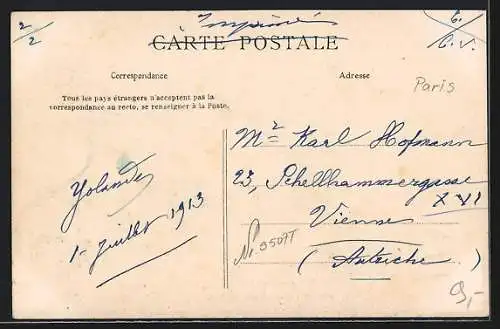 2/2
Imprimé
CARTE POSTALE
Correspondance
Adresse
Paris
Tous les pays étrangers n'acceptent pas la
correspondance au recto, se renseigner à la Poste.
Mr Karl Hofmann
23, Schellhammergasse
XVI
Vienne
(Autriche)
Yolande
1 - Juillet 1913
Nr. 95077
9,-